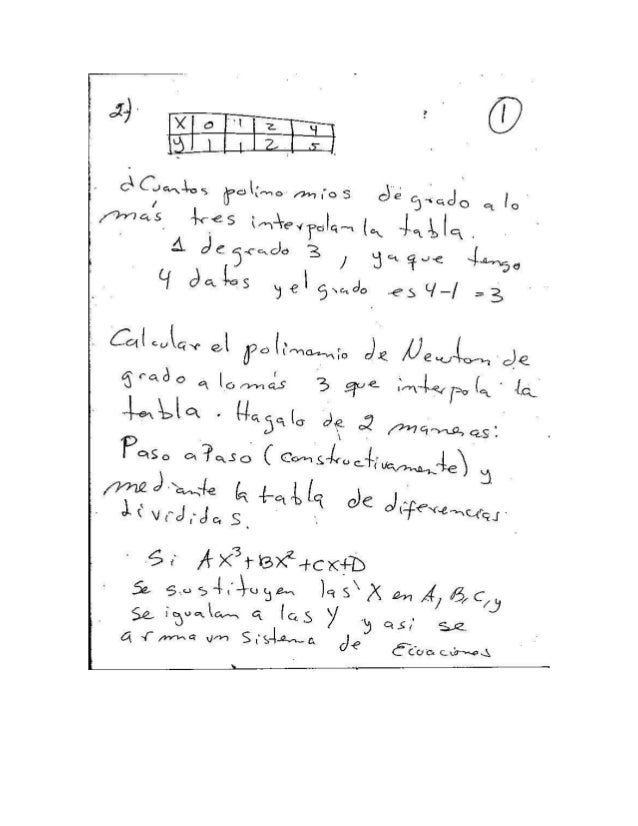 2)
1
X 0 1 2 4
y 1 1 2 5
¿Cuantos polinomios de grado a lo
más tres interpolan la tabla.
1 de grado 3, ya que tengo
4 datos y el grado es 4-1 = 3
Calcular el polinomio de Newton de
grado a lo más 3 que interpola la
tabla. Hagalo de 2 maneras:
Paso a Paso (constructivamente) y
mediante la tabla de diferencias
divididas.
Si AX³+BX²+CX+D
se sustituyen las X en A, B, C, y
se igualan a las Y y asi se
arma un sistema de Ecuaciones